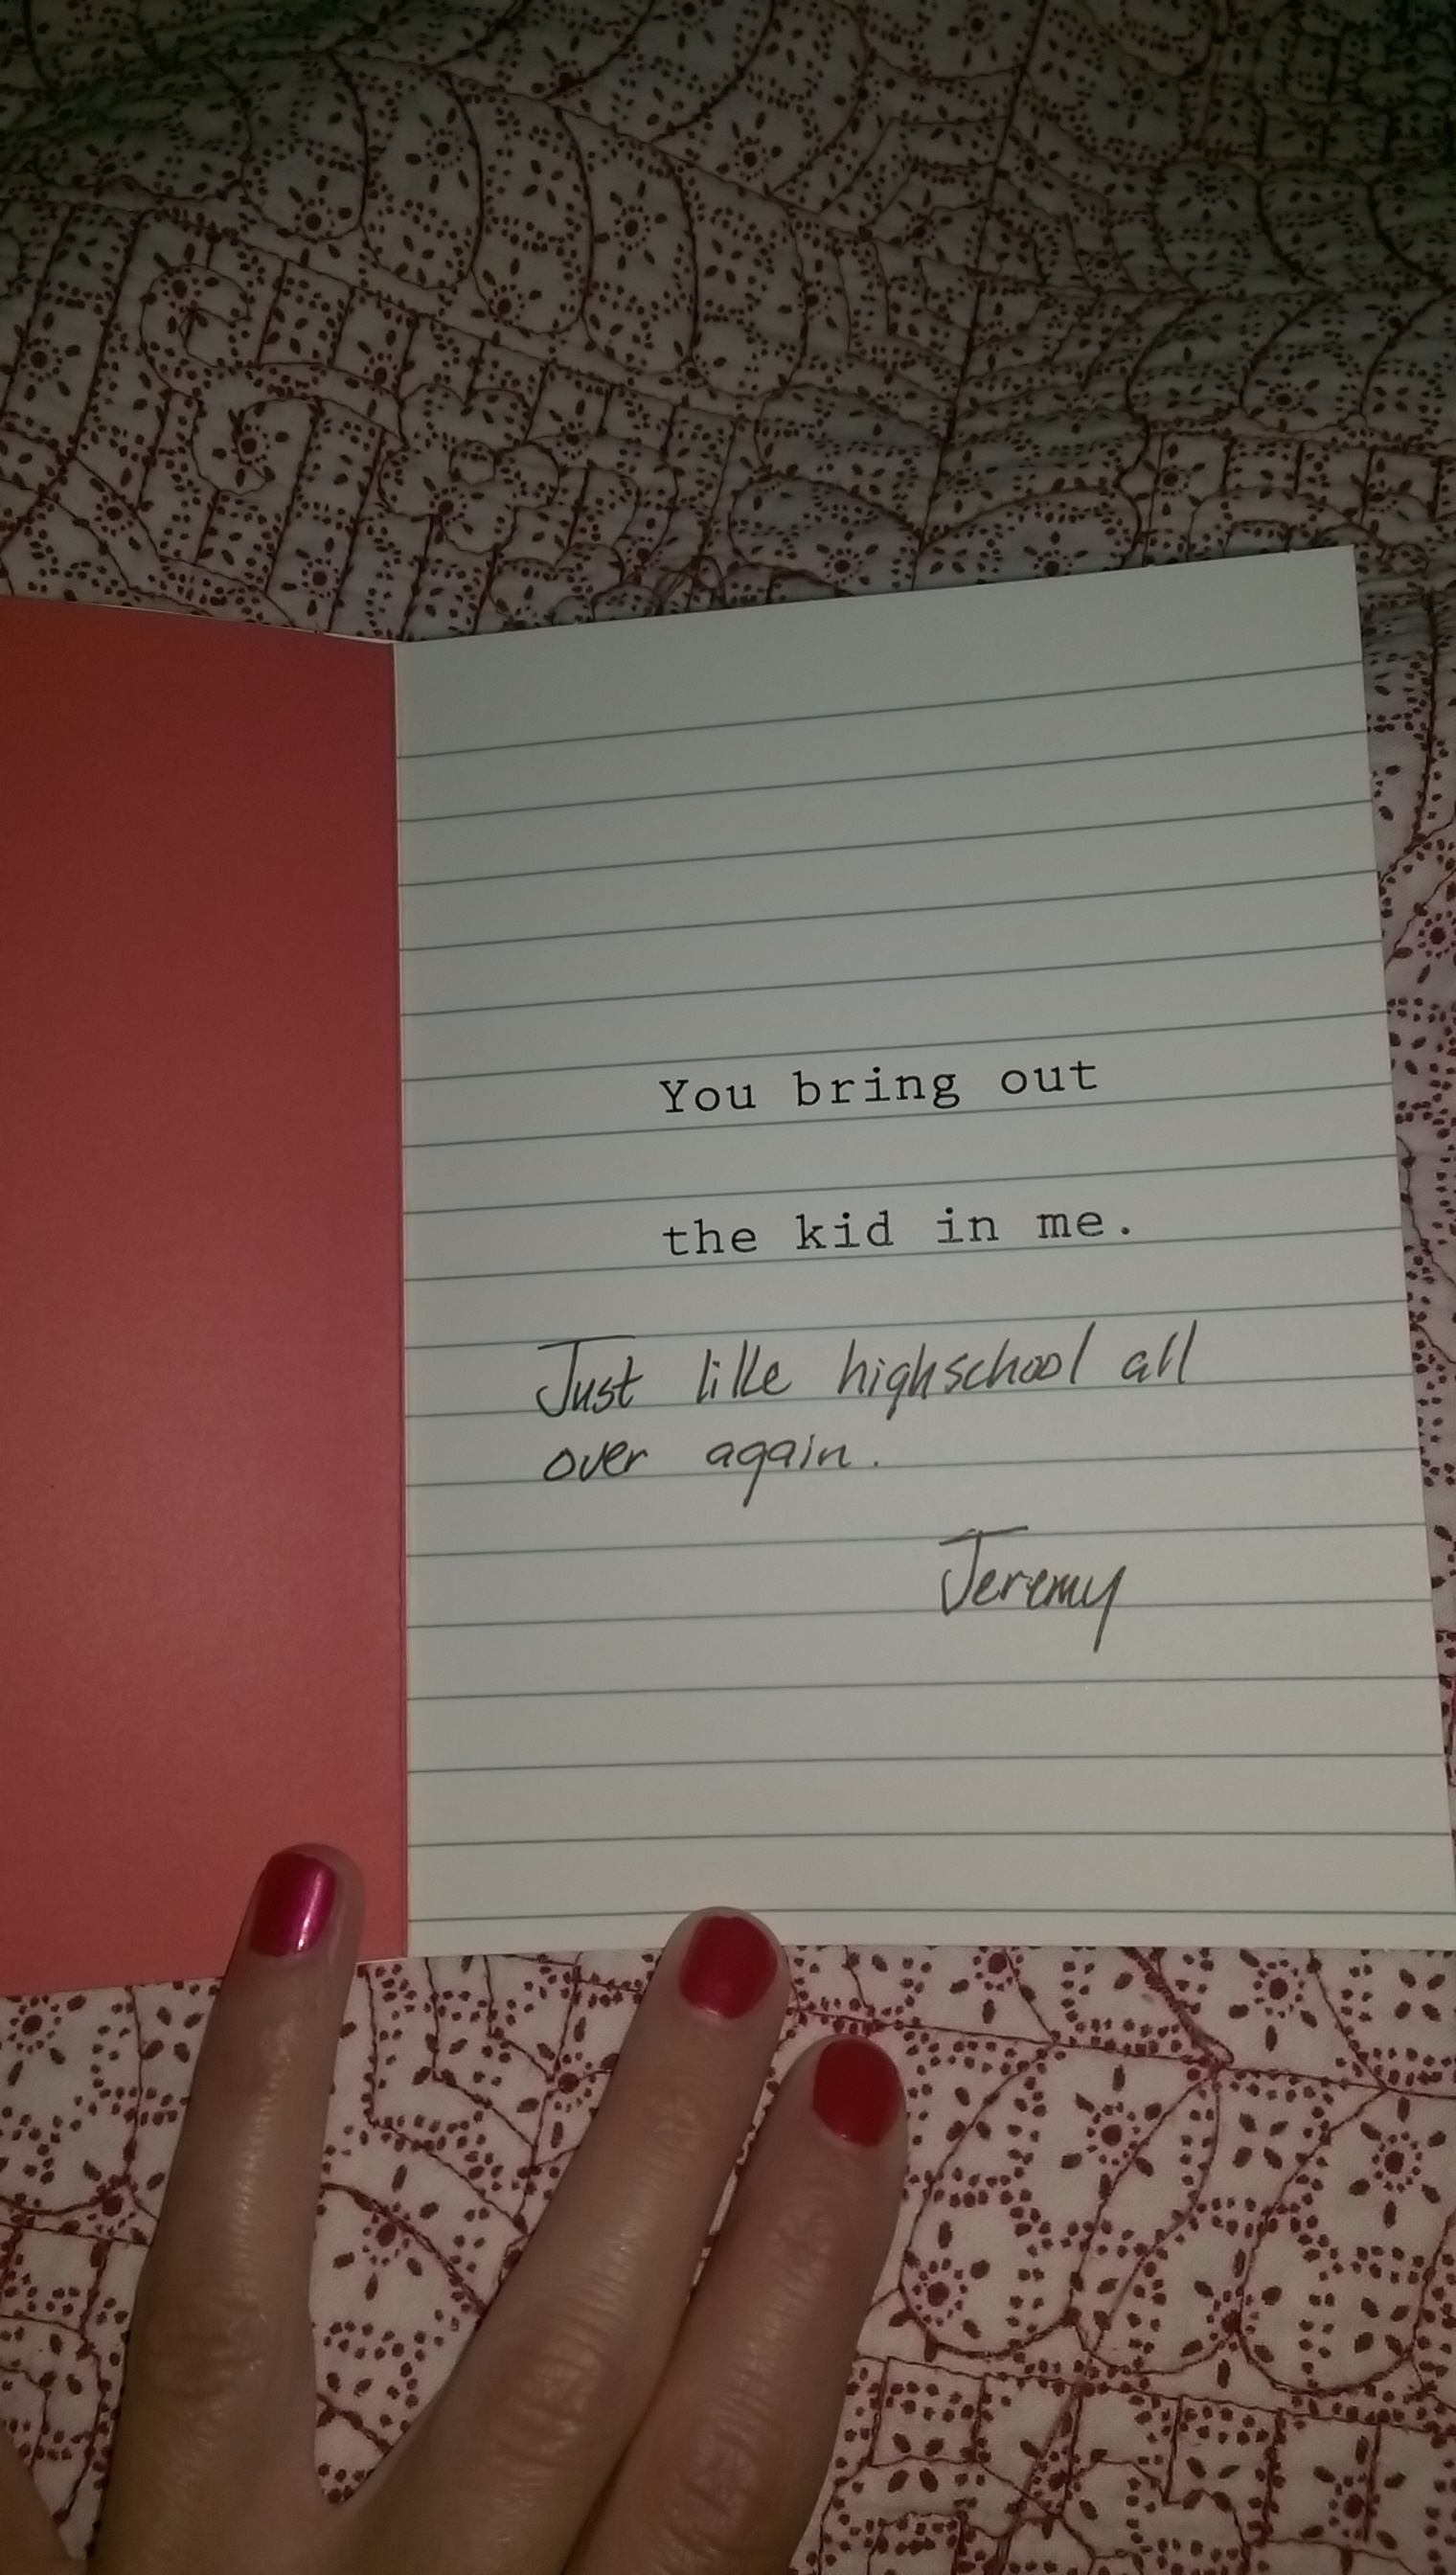 You bring out
the kid in me.
Just like highschool all
over again.
Jeremy